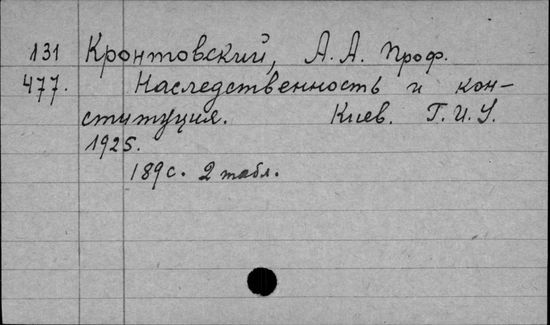 131 Кронтовский, А. А. Проф.
477. Наследственность и кон-
ституция. Киев. Г. И. У.
1925.
189 с. 2 табл.